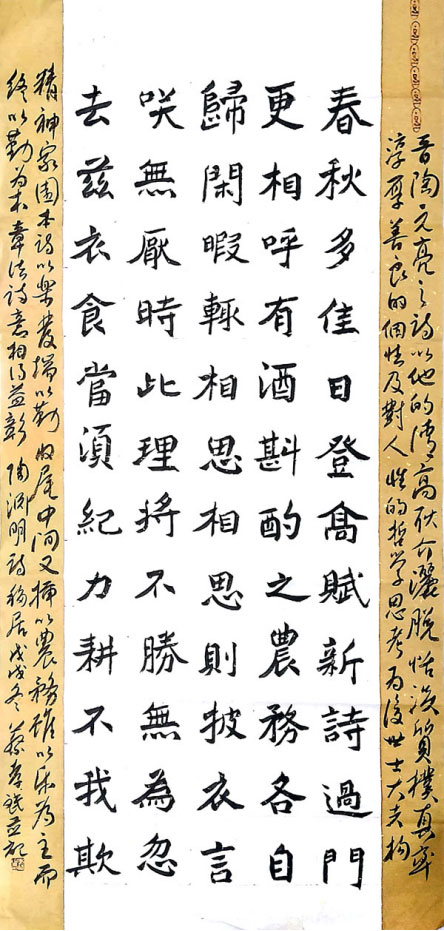 晋陶元亮之詩以他的清高耿介灑脱恬淡質樸真率
淳厚善良的個性及對人性的哲学思考為後世士大夫构
春秋多佳日登髙賦新詩過門
更相呼有酒斟酌之農務各自
歸閑暇輒相思相思則披衣言
咲無厭時此理將不勝無為忽
去兹衣食當須紀力耕不我欺
精神家園本詩以樂發端以勤收尾中间又插以農務雖以乐為主而
终以勤为本章法詩意相得益彰 陶渊明詩移居戊戌冬 蔡孝